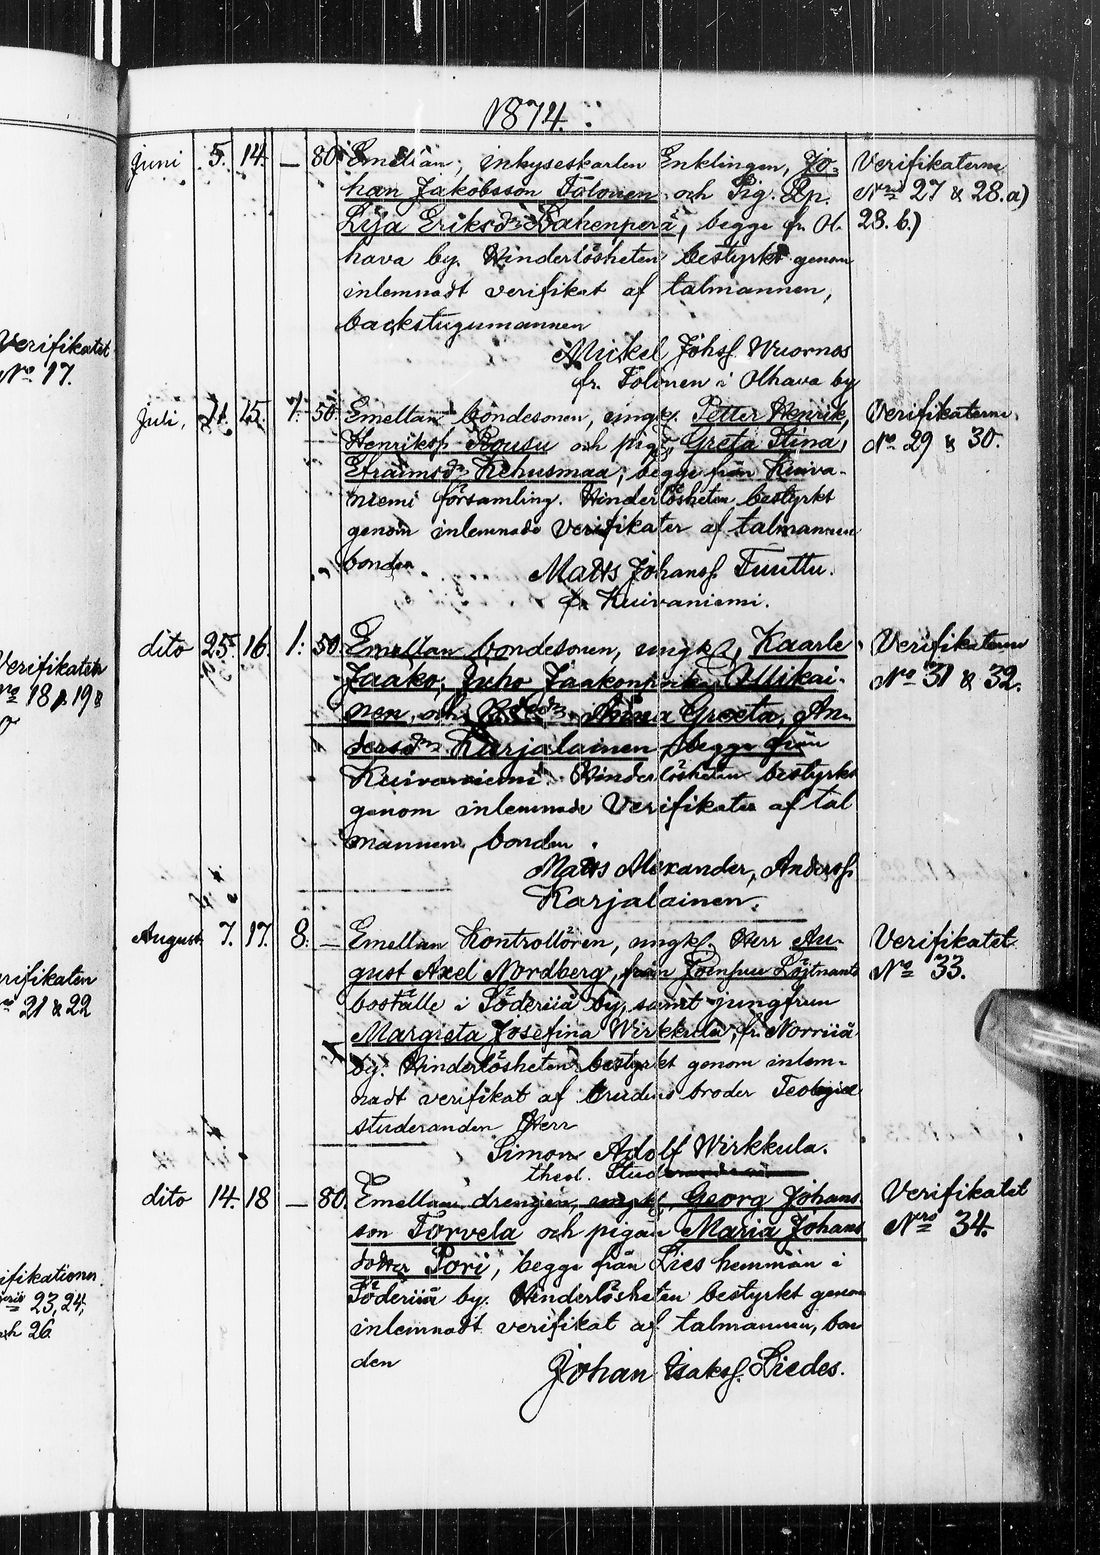 1874.
Juni 5. 14. — 80. Emellan, inhyseskarlen Enklingen, Jo-
han Jakobsson Tolonen och Pig.
Lisa Eriksdr Wahenperä, begge fr. Ol-
hava by. Hinderlösheten bestyrkt genom
inlemnadt verifikat af talmannen,
backstugumannen
Mickel Johsf. Wuornos
fr. Tolonen i Olhava by
Verifikaterne
Nris 27 & 28.a)
28.b.)
Juli, 11. 15. 1. 50. Emellan bondesonen, ungk. Petter Henrik,
Henriksf. Bousu och pig. Greta Stina,
Efraimsdr Kehusmaa, begge från Kuiva-
niemi församling. Hinderlösheten bestyrkt
genom inlemnade verifikater af talmannen
bonden
Matts Johansf. Tuuttu.
fr. Kuivaniemi.
Verifikaterne
No 29 & 30.
dito 25. 16. 1. 50. Emellan bondesonen, ungk., Kaarle
Jaako, Juho Jaakonpoika Ollikai-
nen, och Greta, An-
dersdr Karjalainen begge från
Kuivaniemi. Hinderlösheten bestyrkt
genom inlemnade Verifikater af tal
mannen, bonden
Matts Alexander, Andersf.
Karjalainen.
Verifikaterne
No 31 & 32.
August 7. 17. 8. — Emellan Kontrollören, ungk. Herr Au-
gust Axel Nordberg, från Löjtnants
boställe i Söderiiå by, samt jungfrun
Margreta Josefina Wirkkula, fr. Norriiå
by. Hinderlösheten bestyrkt genom inlem-
nadt verifikat af brudens broder Teologie
studeranden Herr
Simon Adolf Wirkkula.
theol. Stud
Verifikatet
No 33.
dito 14. 18 — 80. Emellan drengen, ungk. Georg Johans
son Torvela och pigan Maria Johans
dotter Pori, begge från Lies hemman i
Söderiiå by. Hinderlösheten bestyrkt genom
inlemnadt verifikat af talmannen, bon
den
Johan Isaksf. Liedes.
Verifikatet
Nro 34.
Verifikatet
No 17.
Verifikaten
Nro 18, 19 &
rifikaten
21 & 22
ifikationer
23, 24,
26